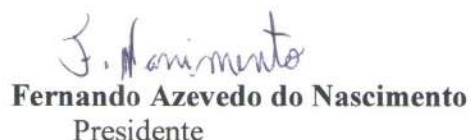 F. Nascimento
Fernando Azevedo do Nascimento
Presidente